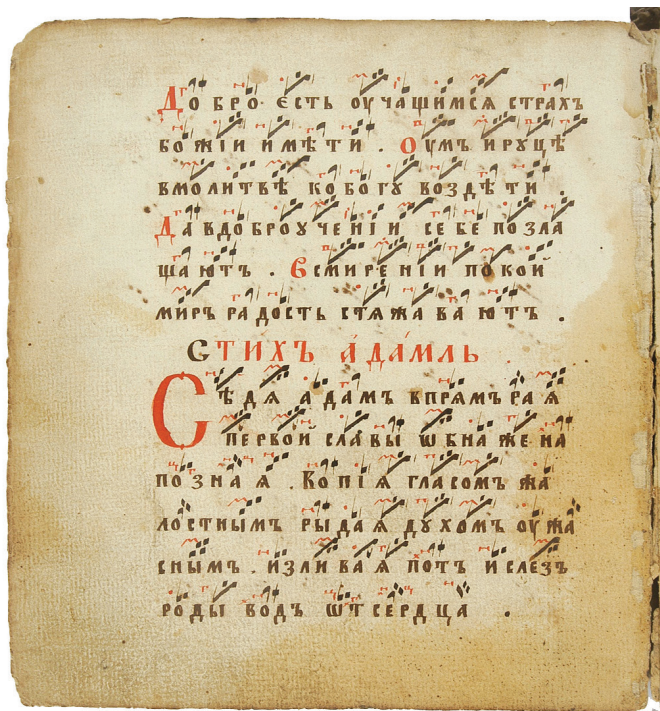 Добро єсть оучащимся страхъ
божіи имѣти . Оумъ ируцѣ
вмолитвѣ кобогу воздѣти .
Давдоброученіи себе позла
щаютъ . Всмиреніи покои
миръ радость стяжаваютъ .
Стихъ ада́мль .
Сѣдя адамъ впрямъ рая
первои славы ѡбнажена
позная . Вопія гласомъ жа
лостнымъ рыдая духомъ оужа
снымъ . изливая потъ ислезъ
роды водъ ѡтсердца .